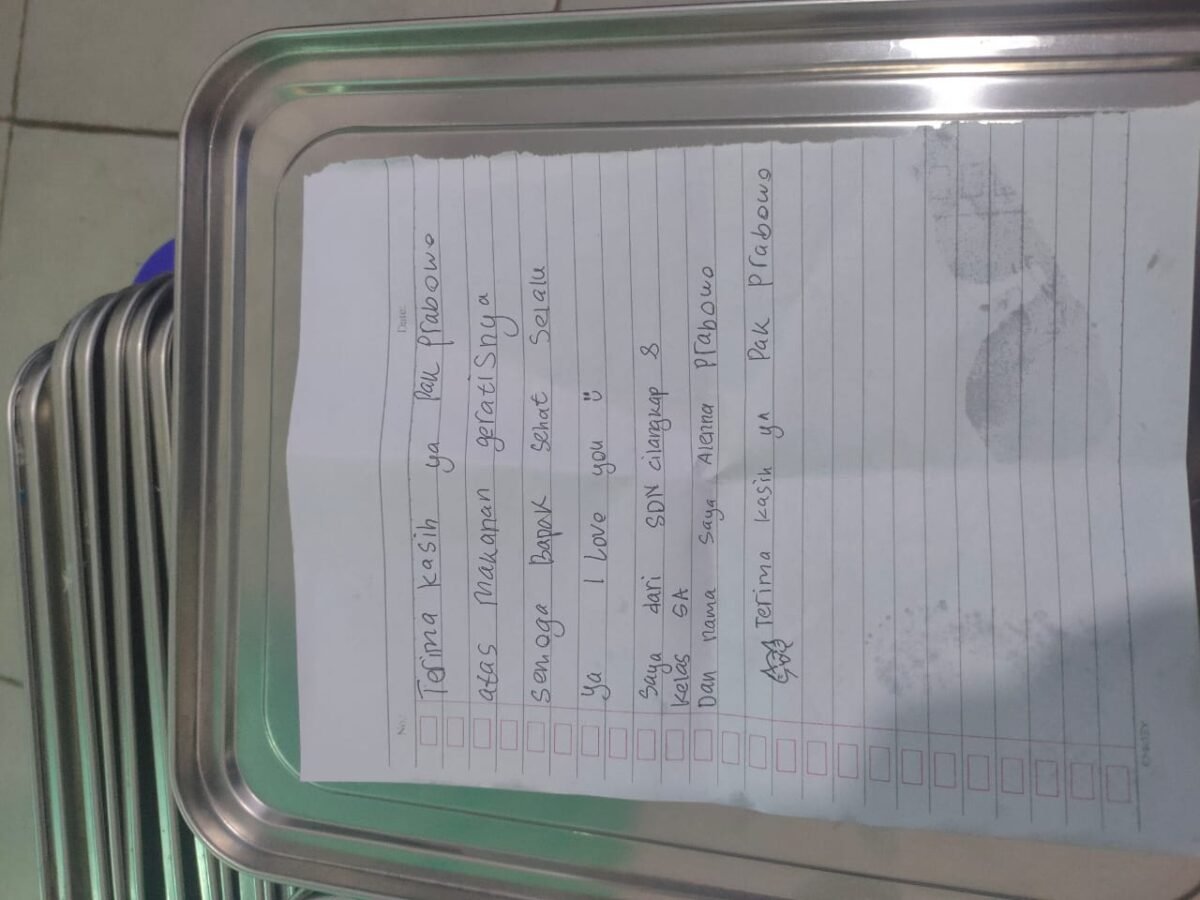 No.: Date:
Terima kasih ya Pak Prabowo
atas Makanan geratisnya
Semoga Bapak sehat selalu
ya I Love you
Saya dari SDN cilangkap 8
Kelas 5A
Dan nama saya Alenna Prabowo
Terima kasih ya Pak Prabowo